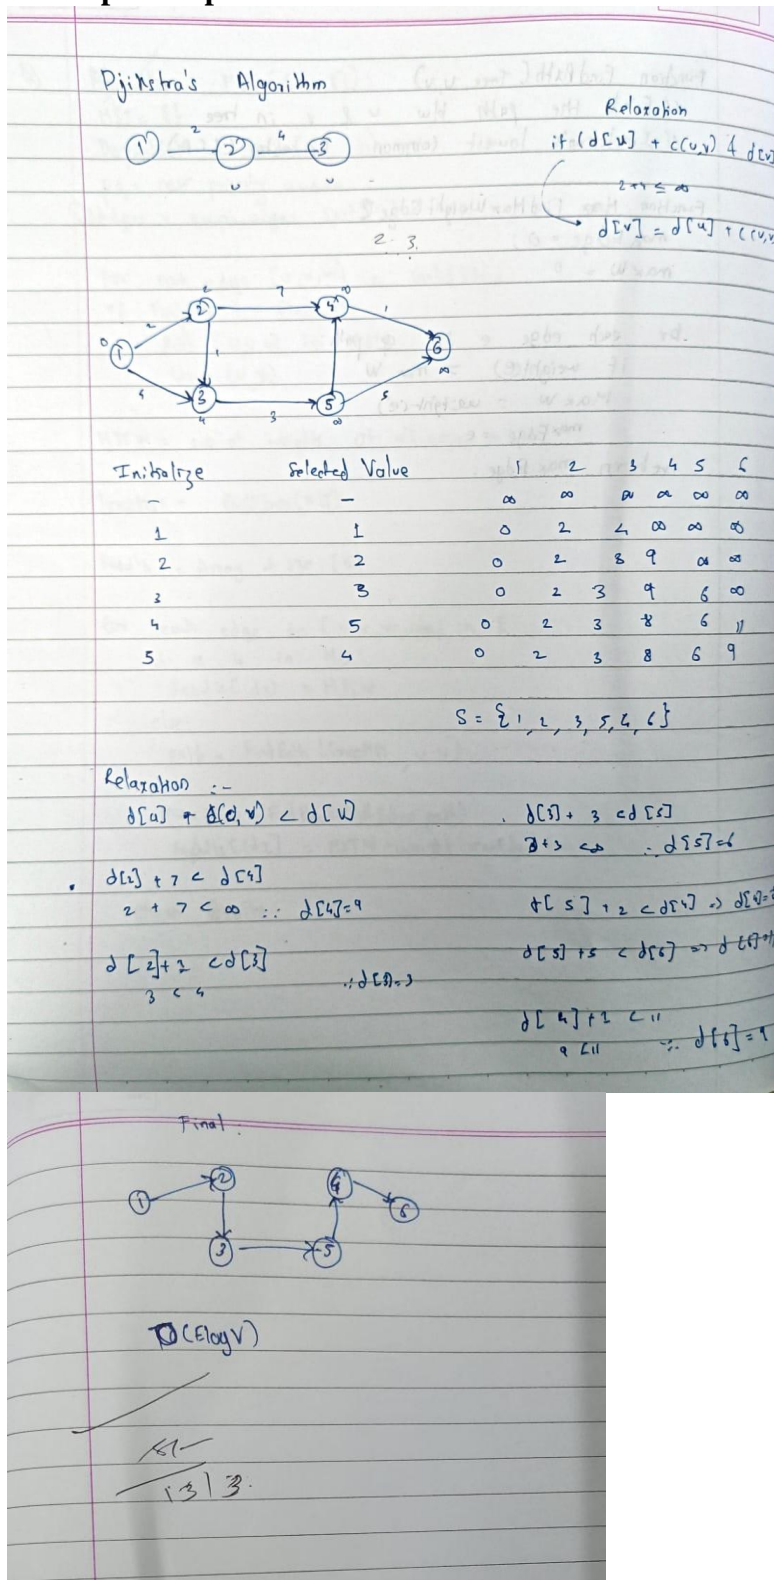 Djikstra's Algorithm
Relaxation
2 4
1 2 3
u v
if (d[u] + c(u,v) < d[v]
2+4 ≤ ∞
d[v] = d[u] + c(u,v
2 3
2 7 ∞
2 4
0 2 1
1 1 6
∞
4 3 5
4 3 5
∞
Initialize Selected Value 1 2 3 4 5 6
- - ∞ ∞ ∞ ∞ ∞ ∞
1 1 0 2 4 ∞ ∞ ∞
2 2 0 2 3 9 ∞ ∞
3 3 0 2 3 9 6 ∞
4 5 0 2 3 8 6 11
5 4 0 2 3 8 6 9
S = {1, 2, 3, 5, 4, 6}
Relaxation :-
d[u] + c(u,v) < d[v]
d[2] + 7 < d[4]
2 + 7 < ∞ ∴ d[4]=9
d[2]+1 < d[3]
3 < 4 ∴ d[3]=3
d[3] + 3 < d[5]
3+3 <∞ ∴ d[5]=6
d[5] + 2 < d[4] => d[4]=8
d[5] +5 < d[6] => d[6]=11
d[4]+1 < 11
9 < 11 ∴ d[6]=9
Final :
2 4
1 6
3 5
O(ElogV)
13/3.